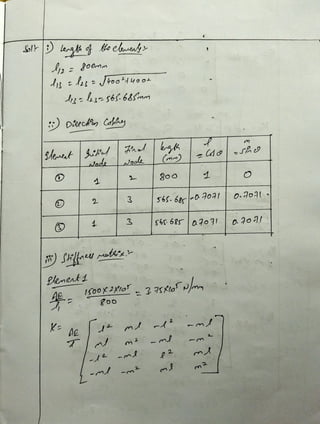 Sol:- i) Length of the elements:-
l12 = 800mm
l13 = l23 = √400²+400²
l13 = l23 = 565.685mm
ii) Direction Cosines
Element Initial node Final node length (mm) l = Cosθ m = sinθ
① 1 2 800 1 0
② 2 3 565.685 -0.7071 0.7071
③ 1 3 565.685 0.7071 0.7071
iii) Stiffness matrix:-
Element 1
AE/l1 = 1500×2×10⁵/800 = 3.75×10⁵ N/mm
K = AE/l [ l² ml -l² -ml
ml m² -ml -m²
-l² -ml l² ml
-ml -m² ml m² ]